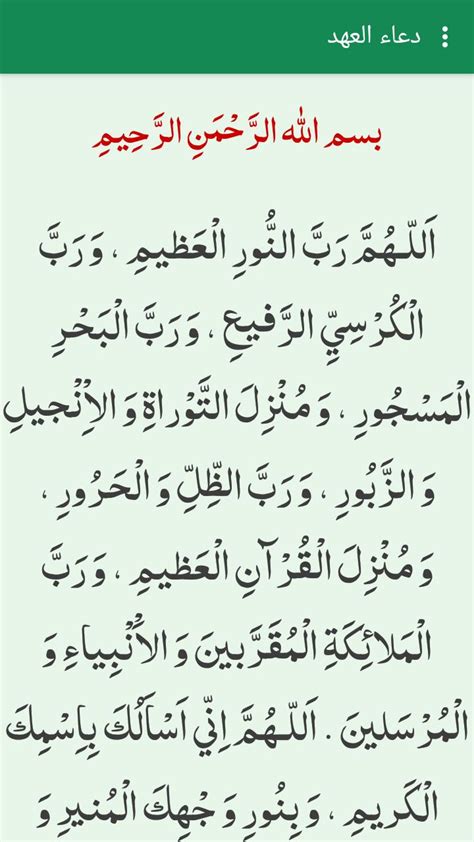 دعاء العهد
بسم الله الرَّحْمَنِ الرَّحِيمِ
اَللّـهُمَّ رَبَّ النُّورِ الْعَظيمِ ، وَ رَبَّ
الْكُرْسِيِّ الرَّفيعِ ، وَ رَبَّ الْبَحْرِ
الْمَسْجُورِ ، وَ مُنْزِلَ التَّوْراةِ وَ الاِْنْجيلِ
وَ الزَّبُورِ ، وَ رَبَّ الظِّلِّ وَ الْحَرُورِ ،
وَ مُنْزِلَ الْقُرْآنِ الْعَظيمِ ، وَ رَبَّ
الْمَلائِكَةِ الْمُقَرَّبينَ وَ الأَنْبِياءِ وَ
الْمُرْسَلينَ . اَللّـهُمَّ اِنّي اَسْأَلُكَ بِاِسْمِكَ
الْكَريمِ ، وَ بِنُورِ وَجْهِكَ الْمُنيرِ وَ